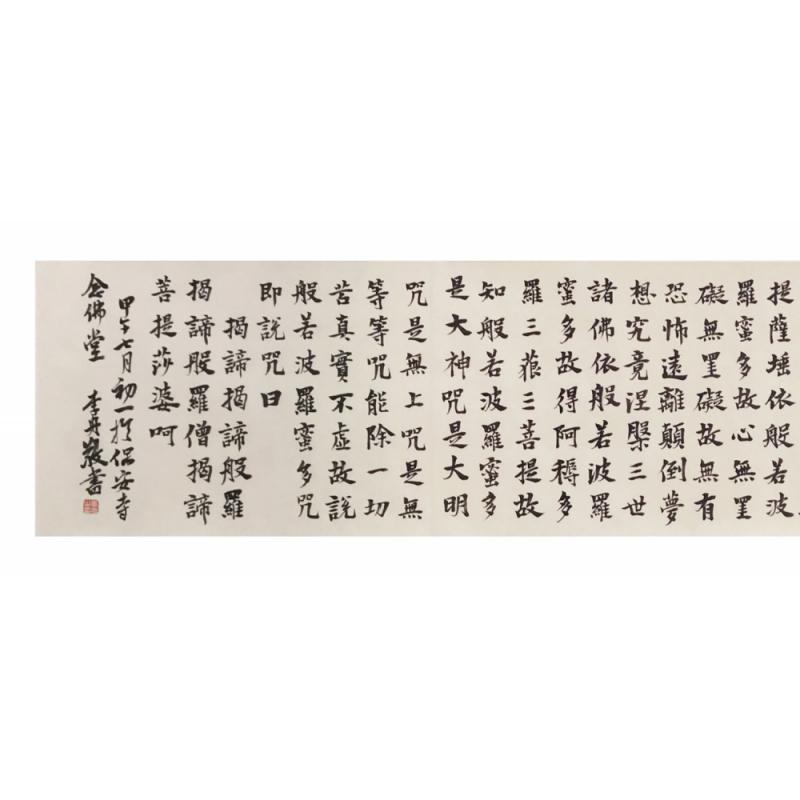 提薩埵依般若波
羅蜜多故心無罣
礙無罣礙故無有
恐怖遠離顛倒夢
想究竟涅槃三世
諸佛依般若波羅
蜜多故得阿耨多
羅三藐三菩提故
知般若波羅蜜多
是大神咒是大明
咒是無上咒是無
等等咒能除一切
苦真實不虛故說
般若波羅蜜多咒
即說咒曰
揭諦揭諦般羅
揭諦般羅僧揭諦
菩提莎婆呵
甲午七月初一於保安寺
念佛堂 李丹敬書